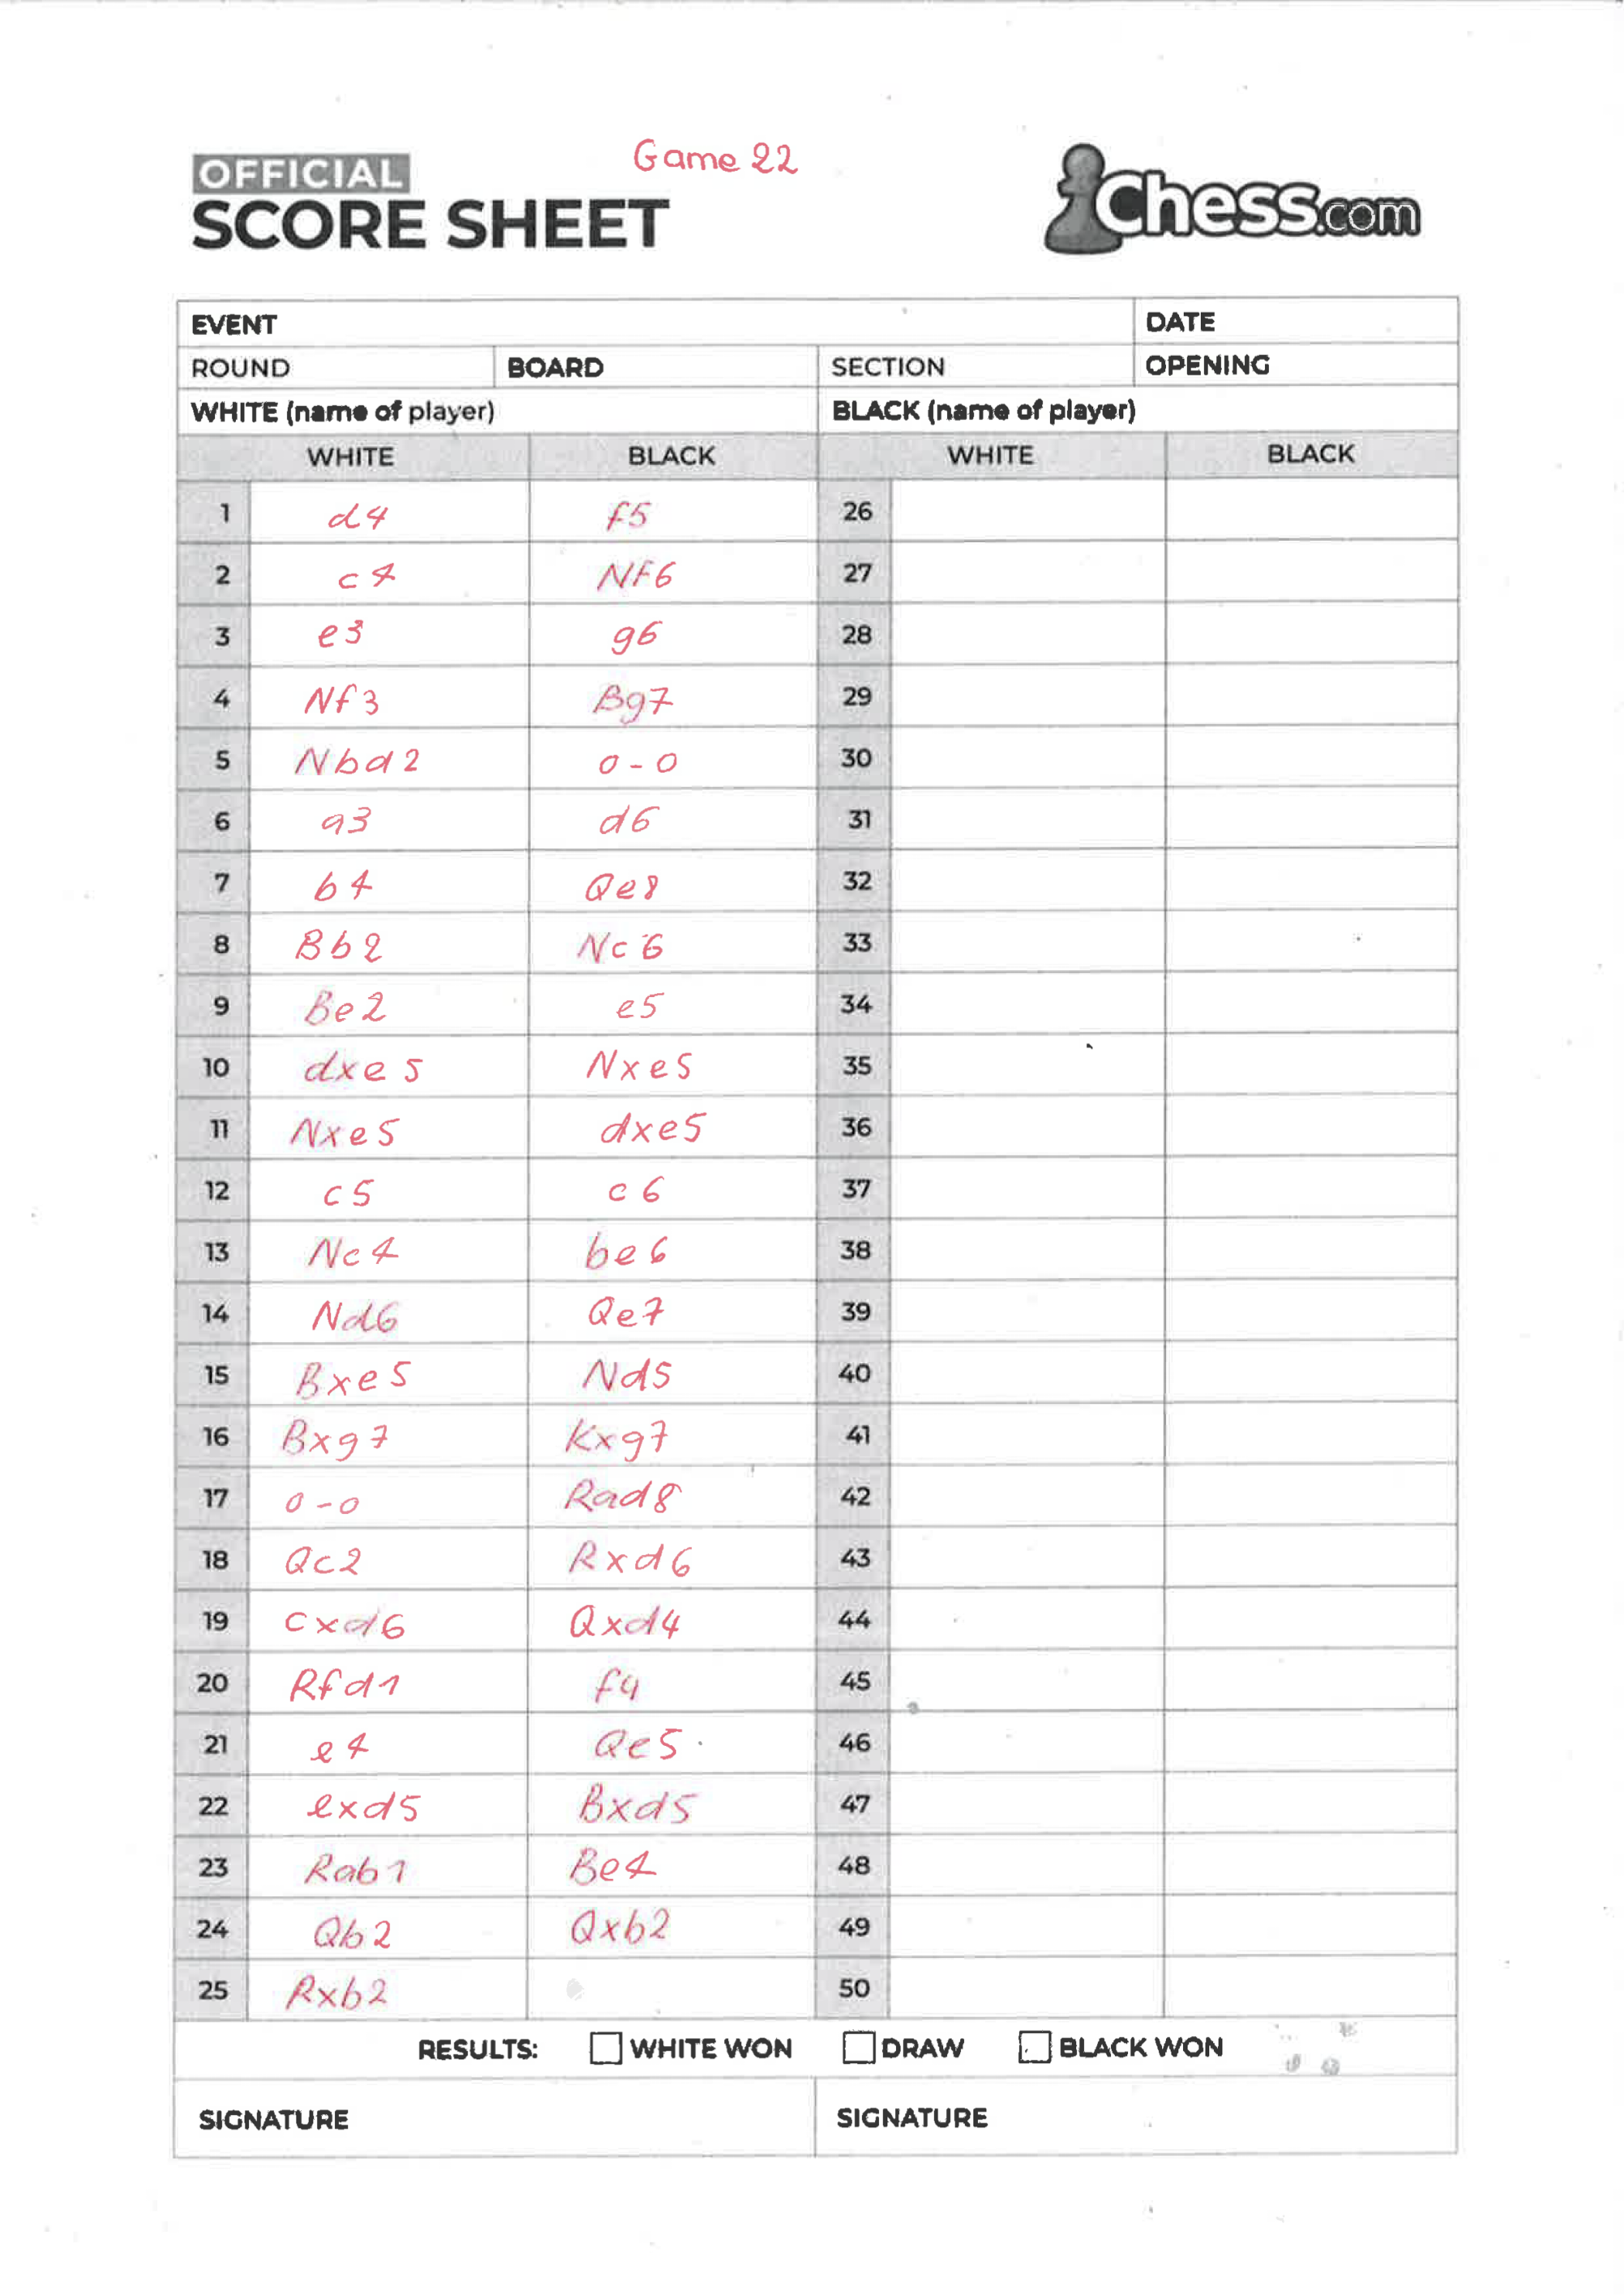 Game 22
OFFICIAL
SCORE SHEET
Chess.com
EVENT DATE
ROUND BOARD SECTION OPENING
WHITE (name of player) BLACK (name of player)
WHITE BLACK WHITE BLACK
1 d4 f5 26
2 c4 Nf6 27
3 e3 g6 28
4 Nf3 Bg7 29
5 Nbd2 0-0 30
6 a3 d6 31
7 b4 Qe8 32
8 Bb2 Nc6 33
9 Be2 e5 34
10 dxe5 Nxe5 35
11 Nxe5 dxe5 36
12 c5 c6 37
13 Nc4 be6 38
14 Nd6 Qe7 39
15 Bxe5 Nd5 40
16 Bxg7 Kxg7 41
17 0-0 Rad8 42
18 Qc2 Rxd6 43
19 cxd6 Qxd4 44
20 Rfd1 f4 45
21 e4 Qe5 46
22 exd5 Bxd5 47
23 Rab1 Be4 48
24 Qb2 Qxb2 49
25 Rxb2 50
RESULTS: WHITE WON DRAW BLACK WON
SIGNATURE SIGNATURE